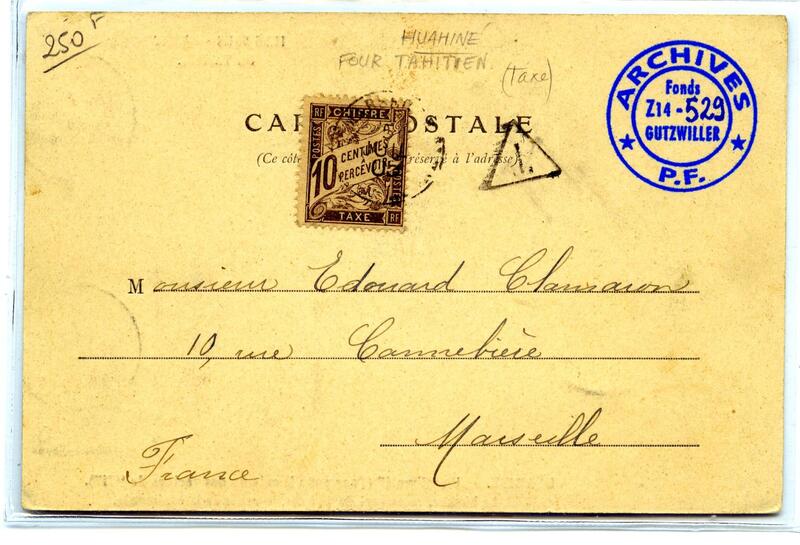 250 F
HUAHINE
FOUR TAHITIEN
(Taxe)
ARCHIVES
Fonds
Z14-529
GUTZWILLER
P.F.
CARTE POSTALE
(Ce côté réservé à l'adresse)
RF CHIFFRE RF
POSTES
10 CENTIMES À PERCEVOIR
POSTES
TAXE RF
T
Monsieur Edouard
10, rue Cannebière
Marseille
France